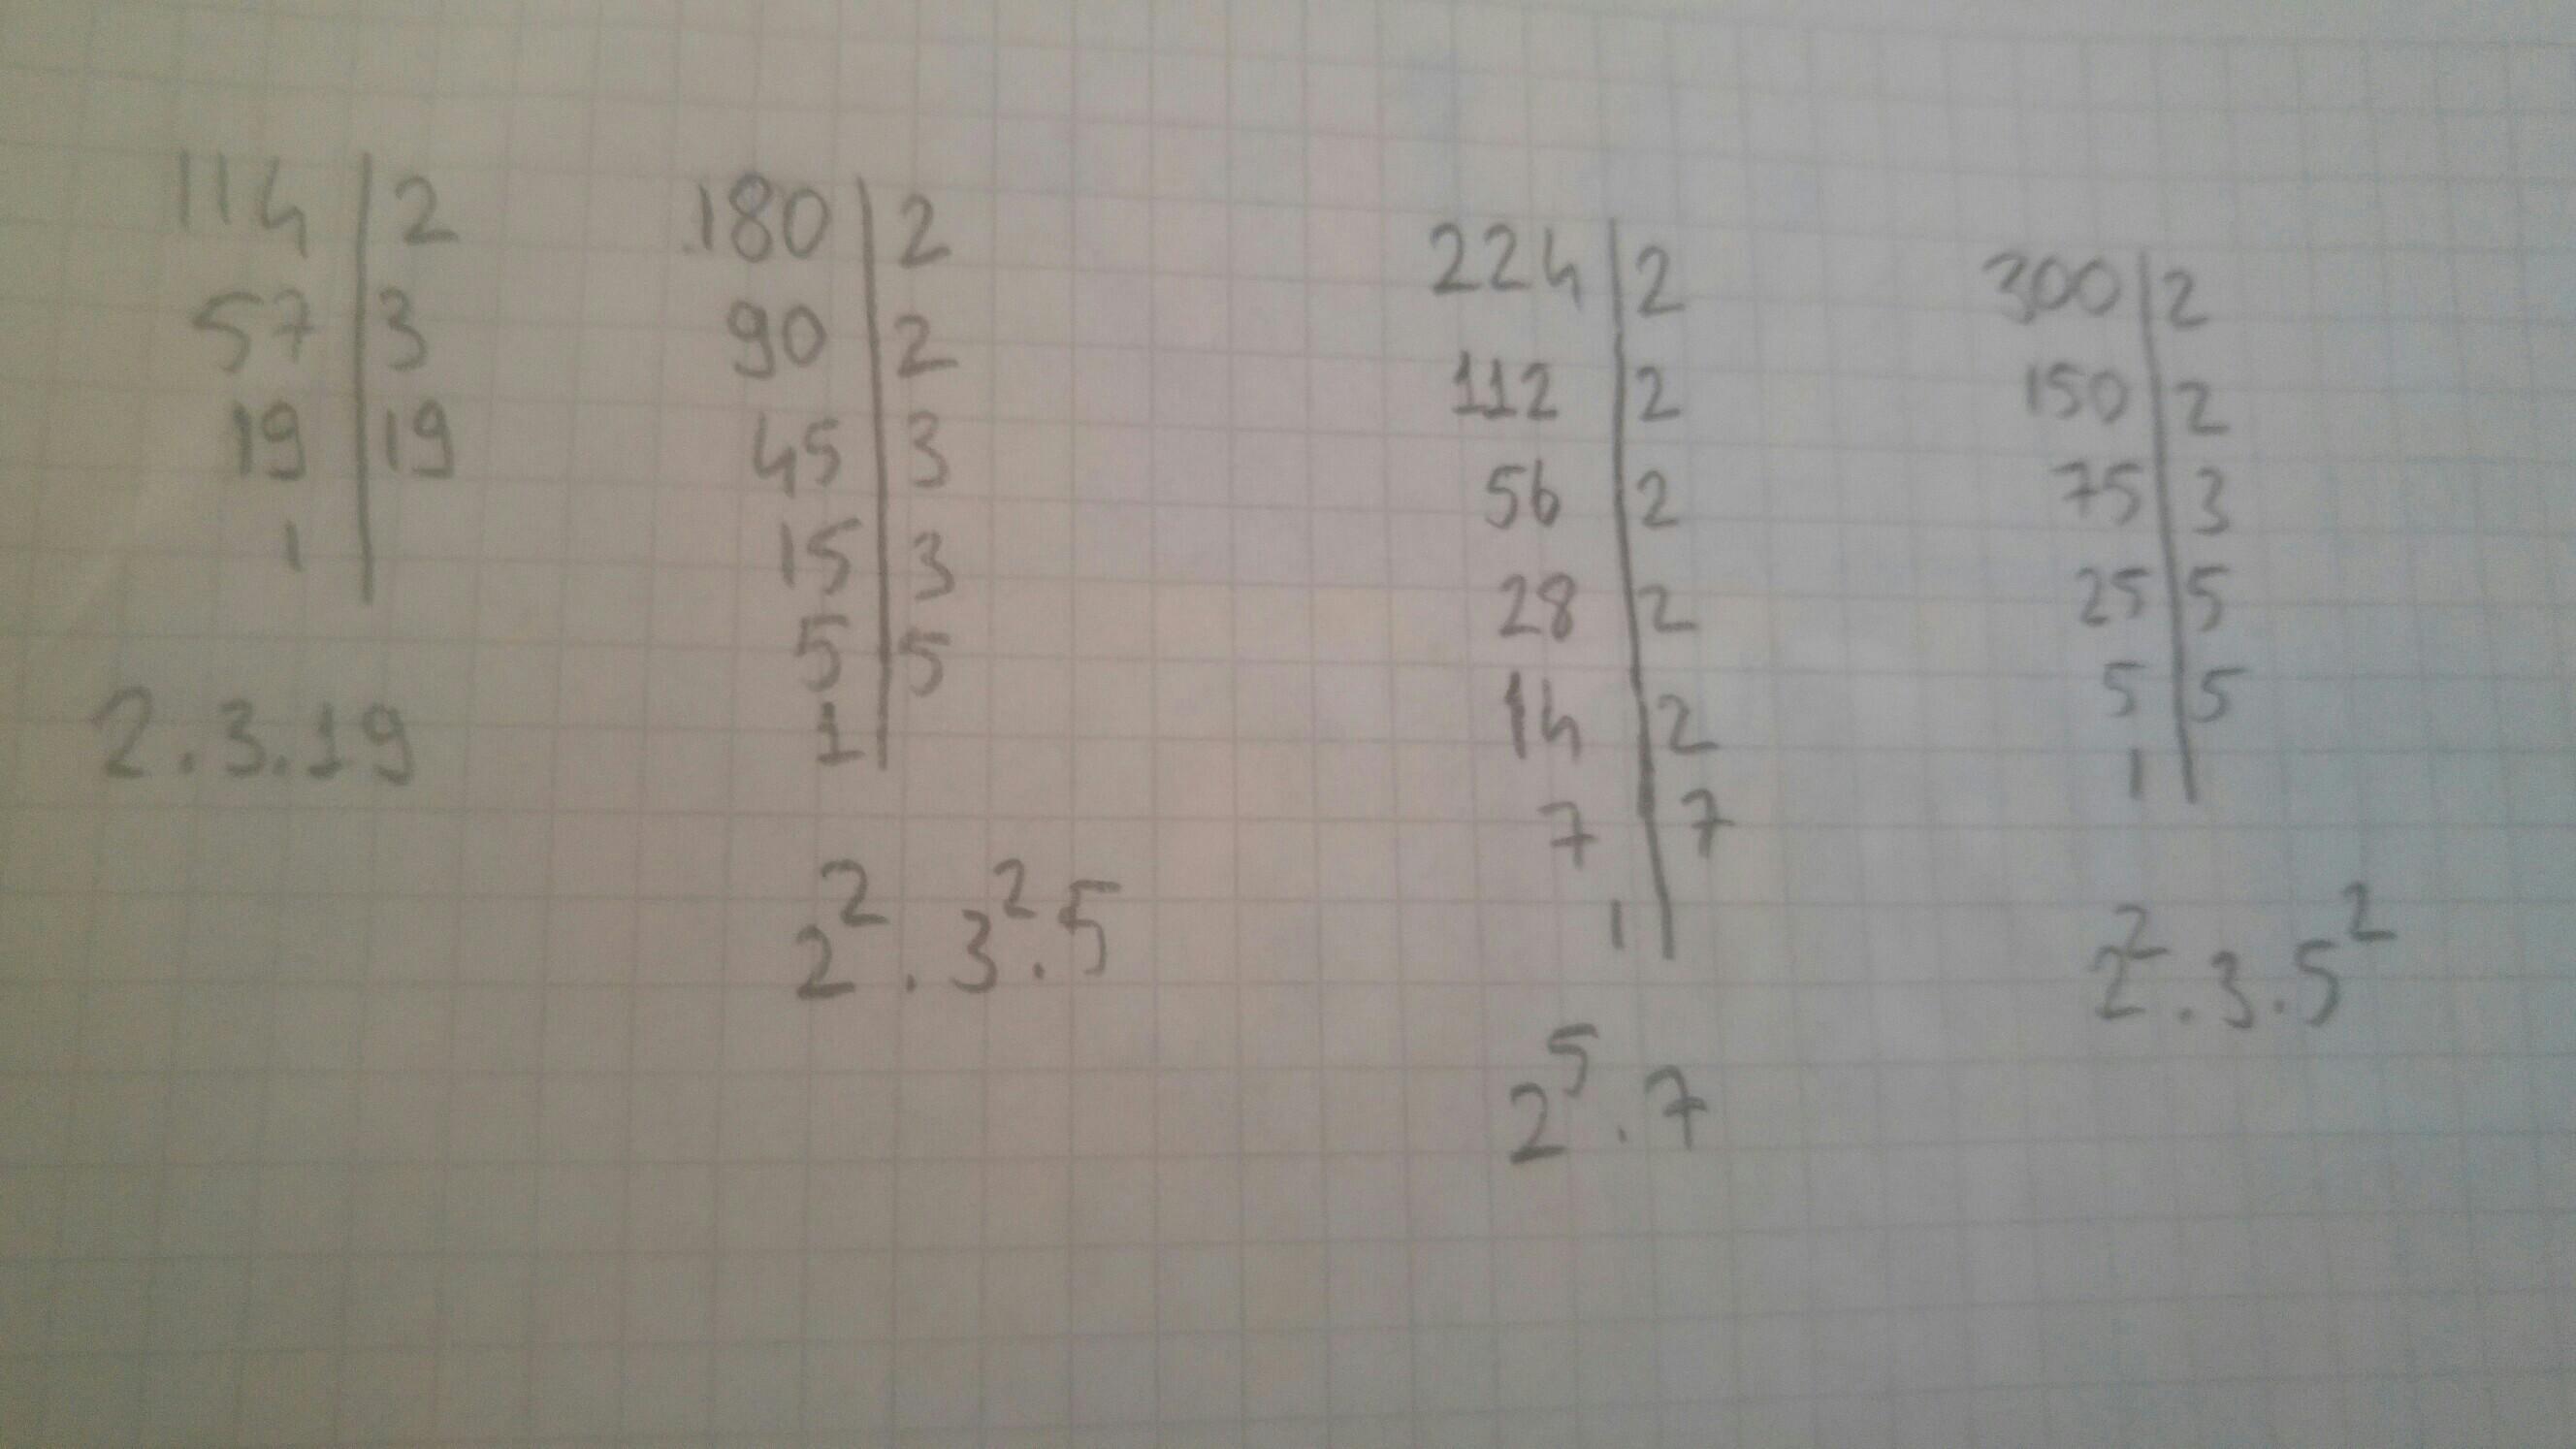 114 | 2
57 | 3
19 | 19
1 |
2.3.19
180 | 2
90 | 2
45 | 3
15 | 3
5 | 5
1 |
2².3².5
224 | 2
112 | 2
56 | 2
28 | 2
14 | 2
7 | 7
1 |
2⁵.7
300 | 2
150 | 2
75 | 3
25 | 5
5 | 5
1 |
2².3.5²